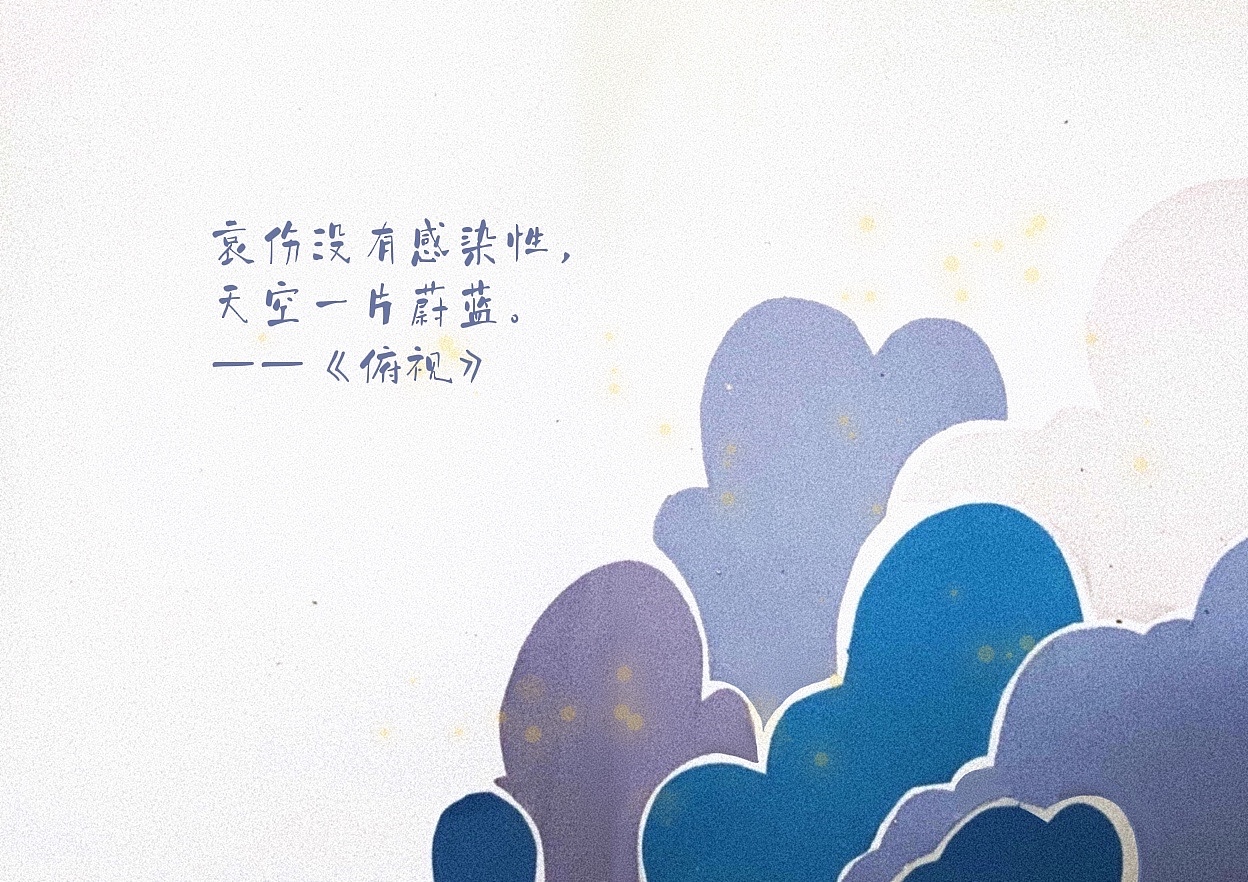 哀伤没有感染性，
天空一片蔚蓝。
——《俯视》